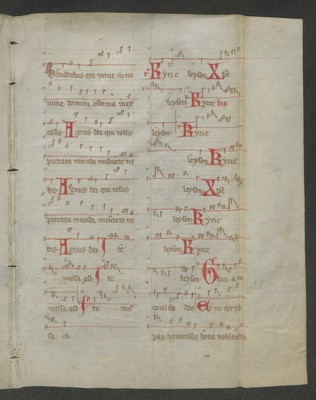 Benedictus qui venit in no
mine domini osanna in ex
celsis Agnus dei qui tollis
peccata mundi miserere no
bis Agnus dei qui tollis
peccata mundi miserere no
bis Agnus dei Ite
missa est Ite
missa est Ite mis
sa est
Kyrie leyson Xpe
leyson Kyrie bis
leyson Kyrie
leyson Kyrie
leyson Xpe
leyson Kyrie
leyson Kyrie
leyson Gloria in
excelsis deo et in terra
pax hominibus bone voluntatis